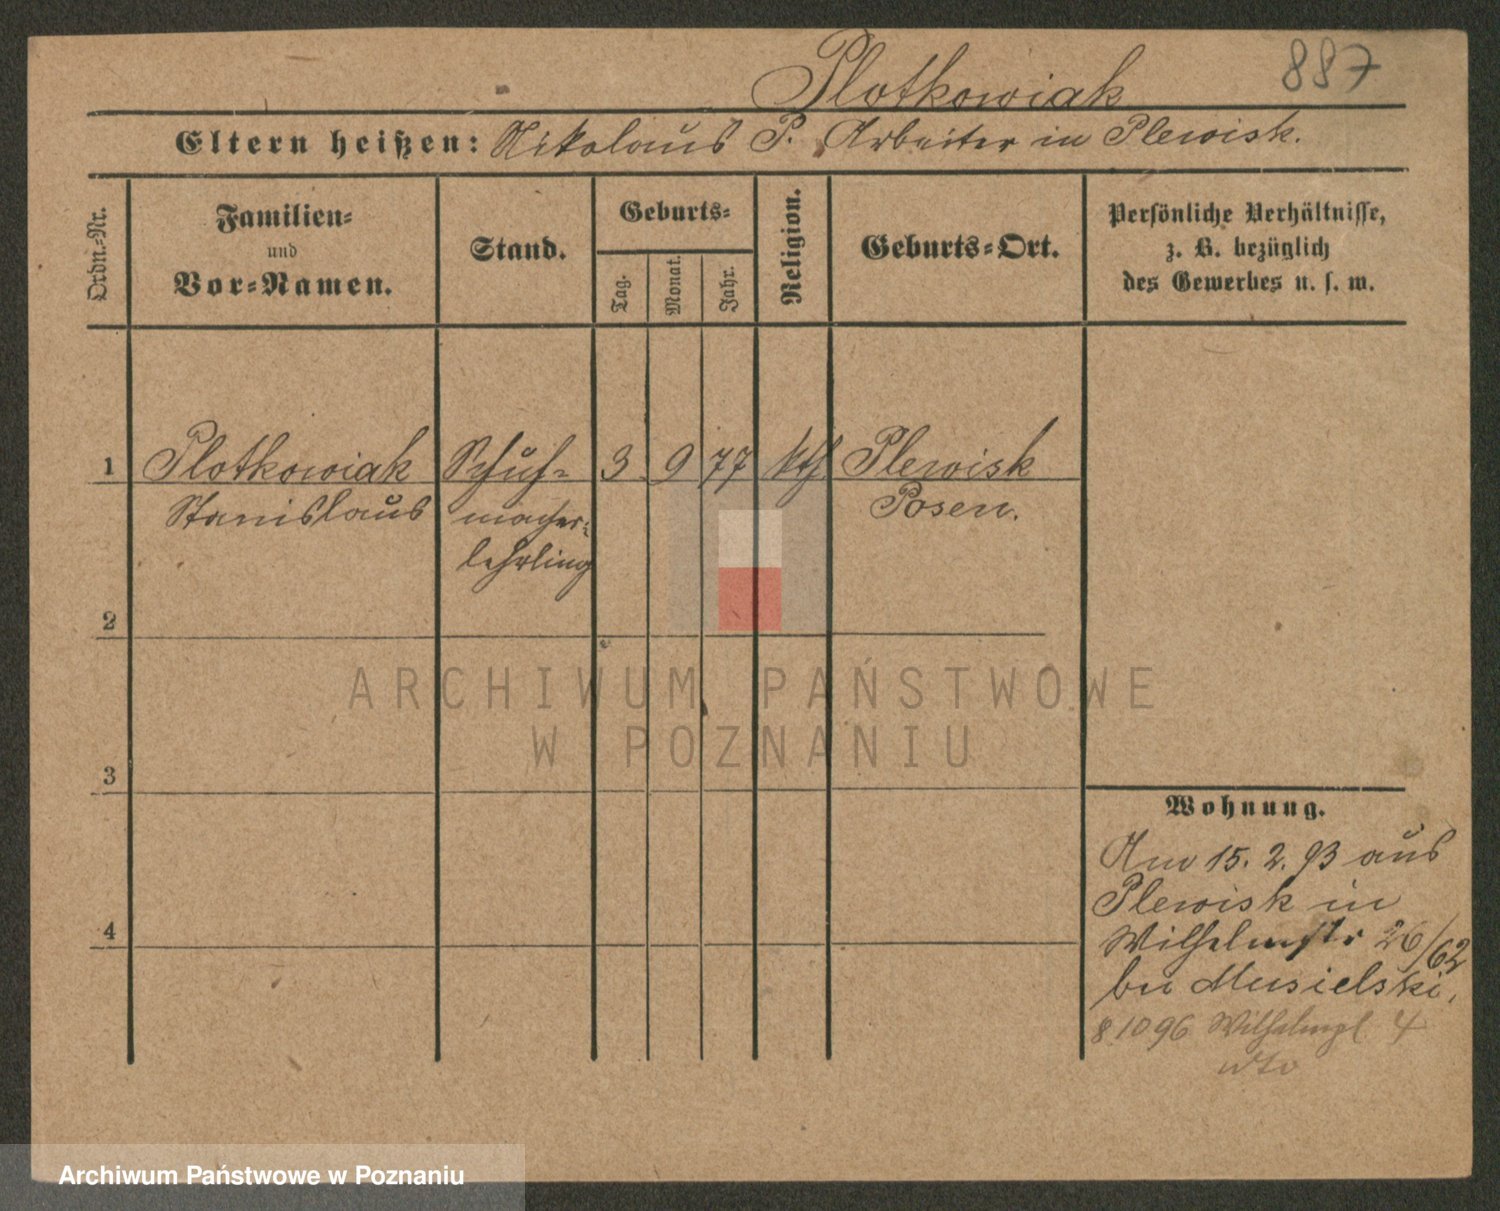 Plotkowiak
887
Eltern heißen: Nikolaus P. Arbeiter in Plewisk.
Ordn.-Nr.
Familien-
und
Vor-Namen.
Stand.
Geburts-
Tag.
Monat.
Jahr.
Religion.
Geburts-Ort.
Persönliche Verhältnisse,
z. B. bezüglich
des Gewerbes u. s. w.
1 Plotkowiak Schuh- 3 9 77 kth. Plewisk
Stanislaus macher- Posen.
lehrling
2
3
4
Wohnung.
Am 15. 2. 93 aus
Plewisk in
Wilhelmstr 26/62
bei Musielski,
8.10 96 Wilhelmpl 4
ARCHIWUM PAŃSTWOWE
W POZNANIU
Archiwum Państwowe w Poznaniu